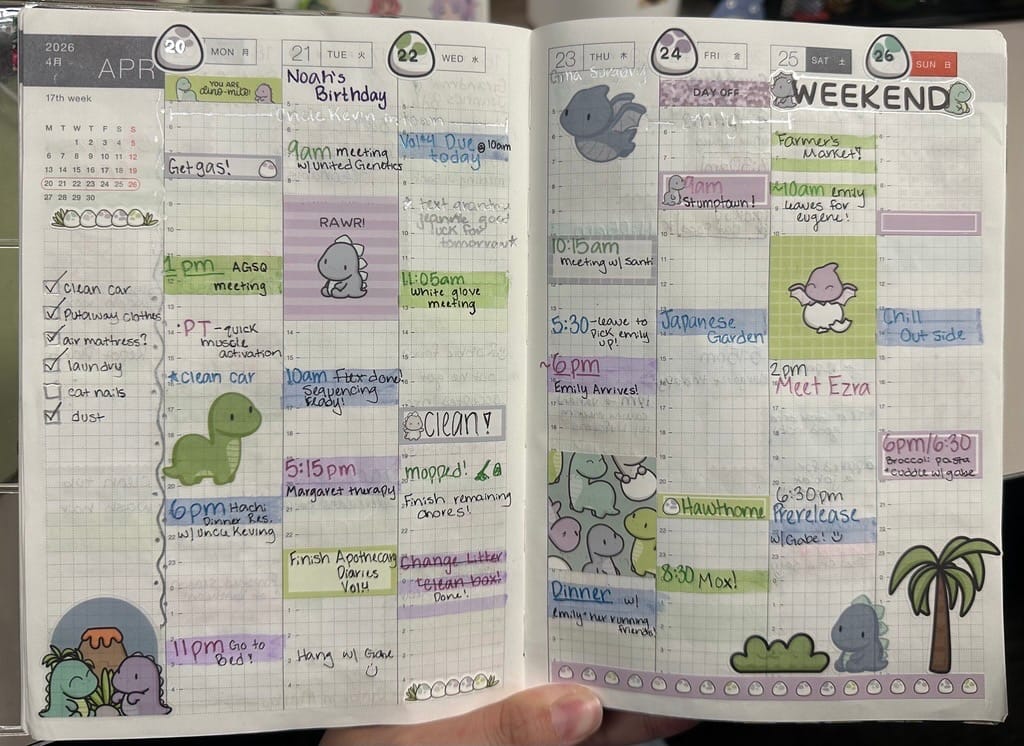 2026
4月
APR
17th week
M T W T F S S
1 2 3 4 5
6 7 8 9 10 11 12
13 14 15 16 17 18 19
20 21 22 23 24 25 26
27 28 29 30
clean car
Putaway clothes
air mattress?
laundry
cat nails
dust
20 MON 月
YOU ARE
dino-mite!
Get gas!
1pm AGSQ
meeting
PT - quick
muscle
activation
*clean car
6pm Hachi
Dinner Res.
w/ Uncle Keving
11pm Go to
Bed!
21 TUE 火
Noah's
Birthday
Uncle Kevin in 10am
9am meeting
w/ United Genetics
RAWR!
10am Flex done!
Sequencing
Ready!
5:15pm
Margaret therapy
Finish Apothecary
Diaries
Vol4
Hang w/ Gabe
22 WED 水
Vol4 Due @ 10am
today
* text grandma
jeannie good
luck for
tomorrow*
11:05am
White glove
meeting
clean!
mopped!
Finish remaining
chores!
Change Litter
+clean box!
Done!
23 THU 木
Gma Surgery
10:15am
meeting w/ Santi
5:30-leave to
pick emily
up!
~6pm
Emily Arrives!
Dinner w/
emily + her running
friends!
24 FRI 金
DAY OFF
9am
Stumptown!
Japanese
Garden
Hawthorne
8:30 Mox!
25 SAT 土
WEEKEND
Farmer's
Market!
~10am emily
leaves for
eugene!
2pm
Meet Ezra
6:30pm
Prerelease
w/ Gabe!
26 SUN 日
Chill
Out side
6pm/6:30
Broccoli pasta
+cuddle w/ gabe